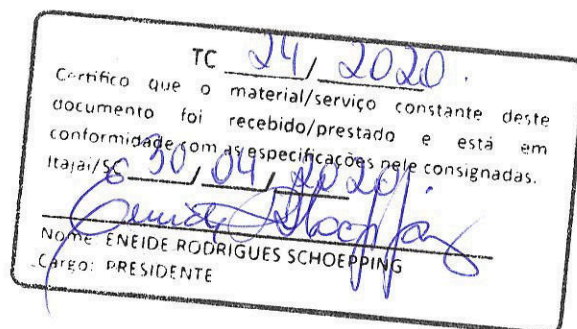 TC 24 / 2020.
Certifico que o material/serviço constante deste
documento foi recebido/prestado e está em
conformidade com as especificações nele consignadas.
Itajaí/SC 30 / 04 / 2020.
Nome ENEIDE RODRIGUES SCHOEPPING
Cargo: PRESIDENTE